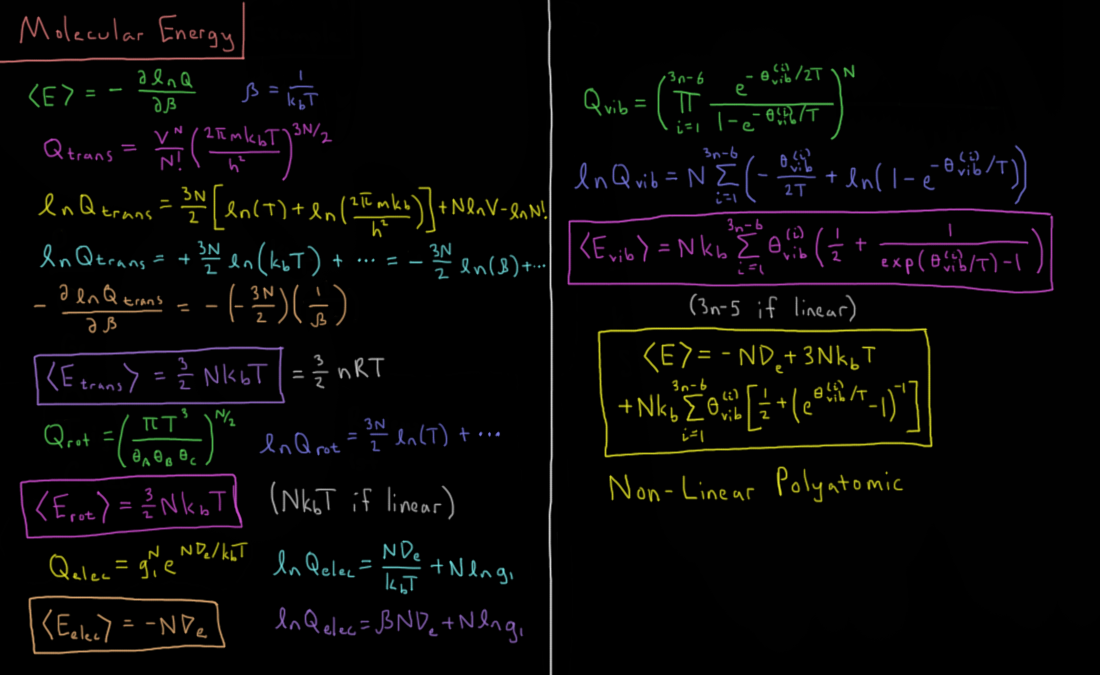 Molecular Energy
⟨E⟩ = - ∂lnQ/∂β    β = 1/(k_bT)
Q_trans = V^N/N! (2πmk_bT/h²)^(3N/2)
lnQ_trans = 3N/2 [ln(T) + ln(2πmk_b/h²)] + NlnV - lnN!
lnQ_trans = + 3N/2 ln(k_bT) + ... = - 3N/2 ln(β) + ...
- ∂lnQ_trans/∂β = -(-3N/2)(1/β)
⟨E_trans⟩ = 3/2 Nk_bT = 3/2 nRT
Q_rot = (πT³/θ_Aθ_Bθ_C)^(N/2)    lnQ_rot = 3N/2 ln(T) + ...
⟨E_rot⟩ = 3/2 Nk_bT    (Nk_bT if linear)
Q_elec = g₁^N e^(ND_e/k_bT)    lnQ_elec = ND_e/(k_bT) + Nlng₁
⟨E_elec⟩ = -ND_e    lnQ_elec = βND_e + Nlng₁
Q_vib = (∏_{i=1}^{3n-6} e^(-θ_vib^(i)/2T) / (1-e^(-θ_vib^(i)/T)))^N
lnQ_vib = N ∑_{i=1}^{3n-6} (-θ_vib^(i)/2T + ln(1-e^(-θ_vib^(i)/T)))
⟨E_vib⟩ = Nk_b ∑_{i=1}^{3n-6} θ_vib^(i) (1/2 + 1/(exp(θ_vib^(i)/T)-1))
(3n-5 if linear)
⟨E⟩ = -ND_e + 3Nk_bT
+ Nk_b ∑_{i=1}^{3n-6} θ_vib^(i) [1/2 + (e^(θ_vib^(i)/T)-1)^-1]
Non-Linear Polyatomic